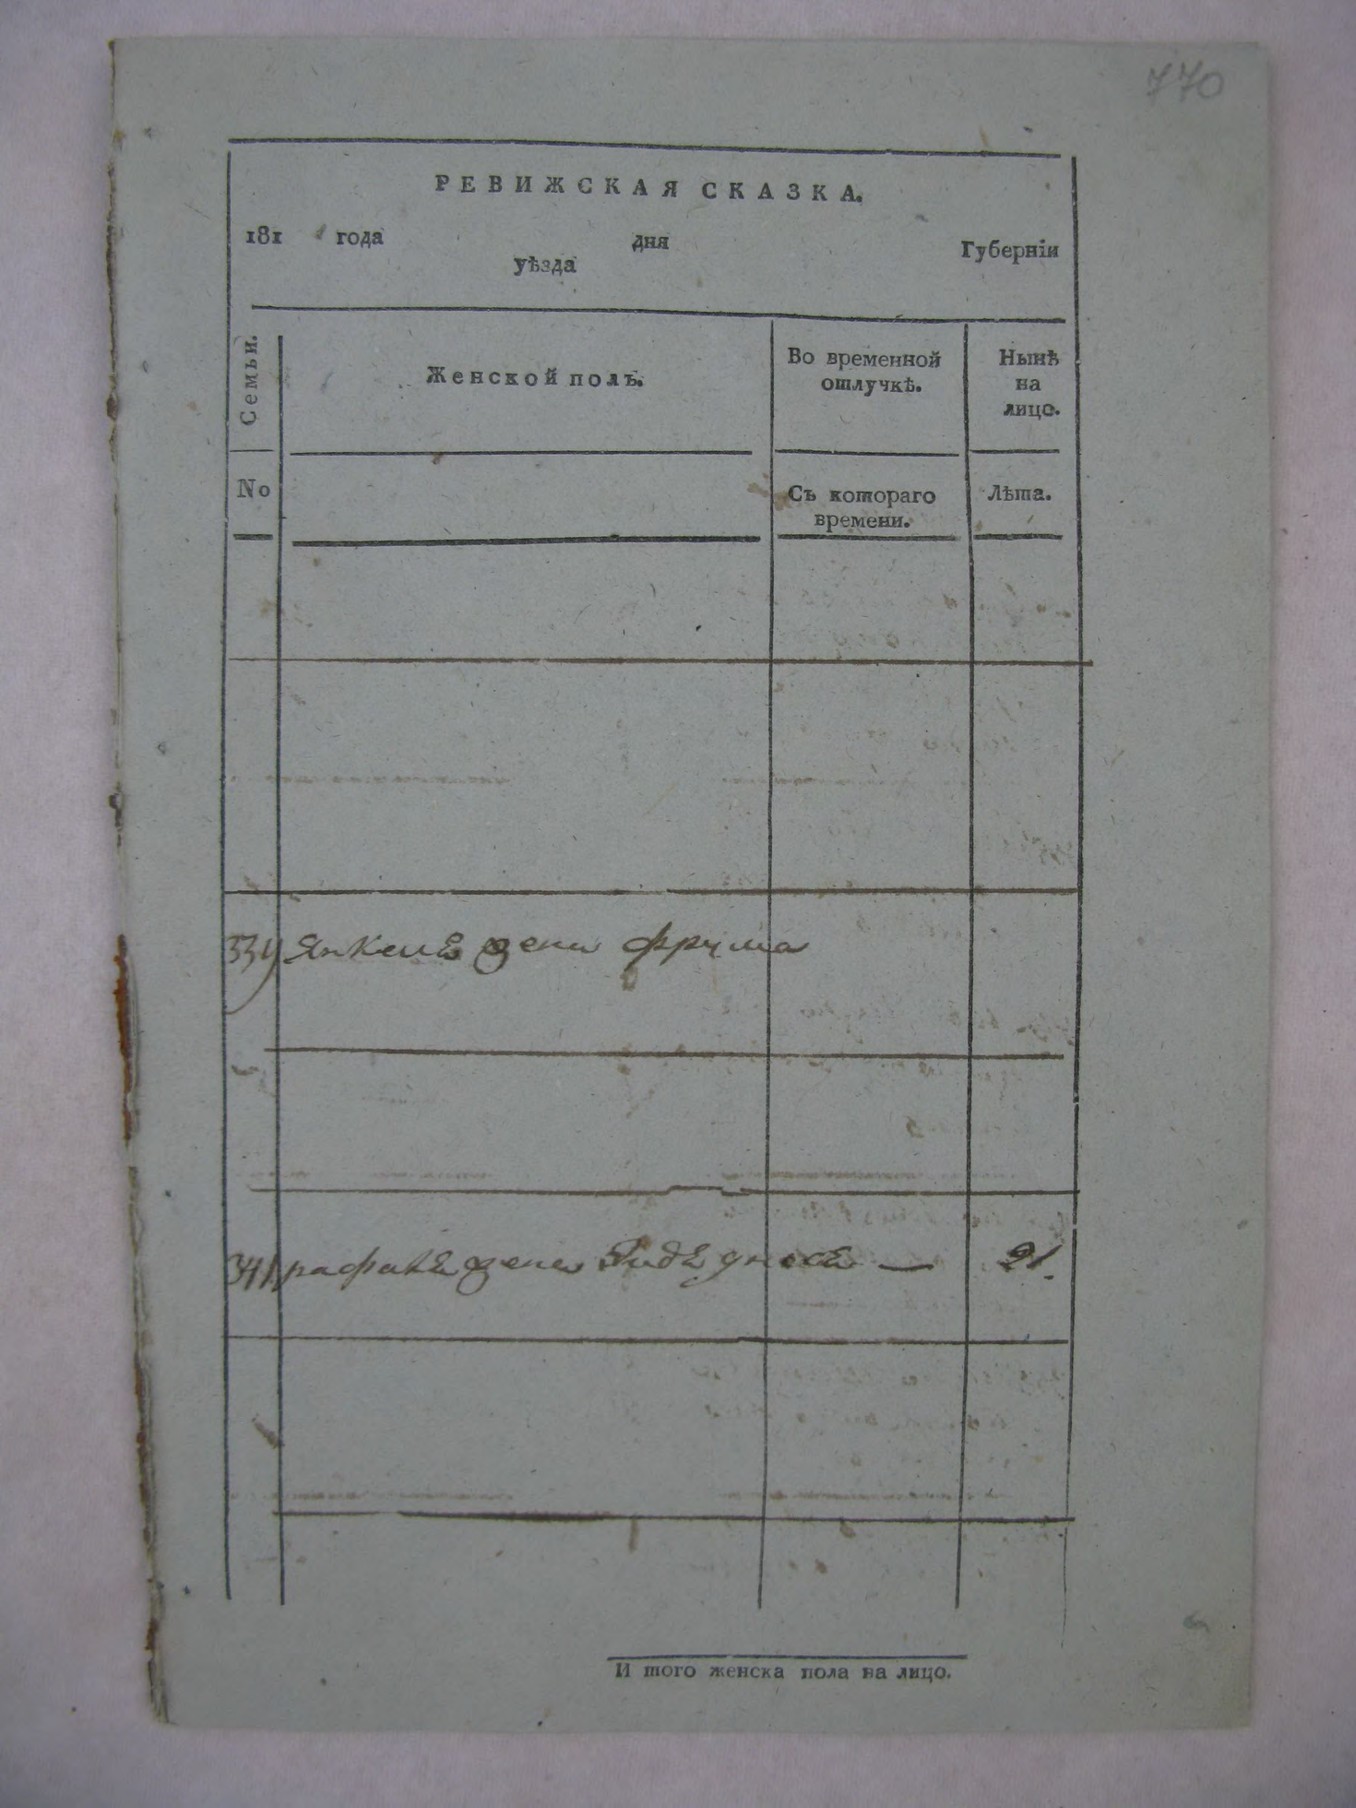 770
РЕВИЖСКАЯ СКАЗКА.
181 года дня
уѣзда Губерніи
Семьи.
Женской полъ.
Во временной отлучкѣ.
Нынѣ на лицо.
No
Съ котораго времени.
Лѣта.
Янкеля жена Фрума
341 жена — 21.
И того женска пола на лицо.